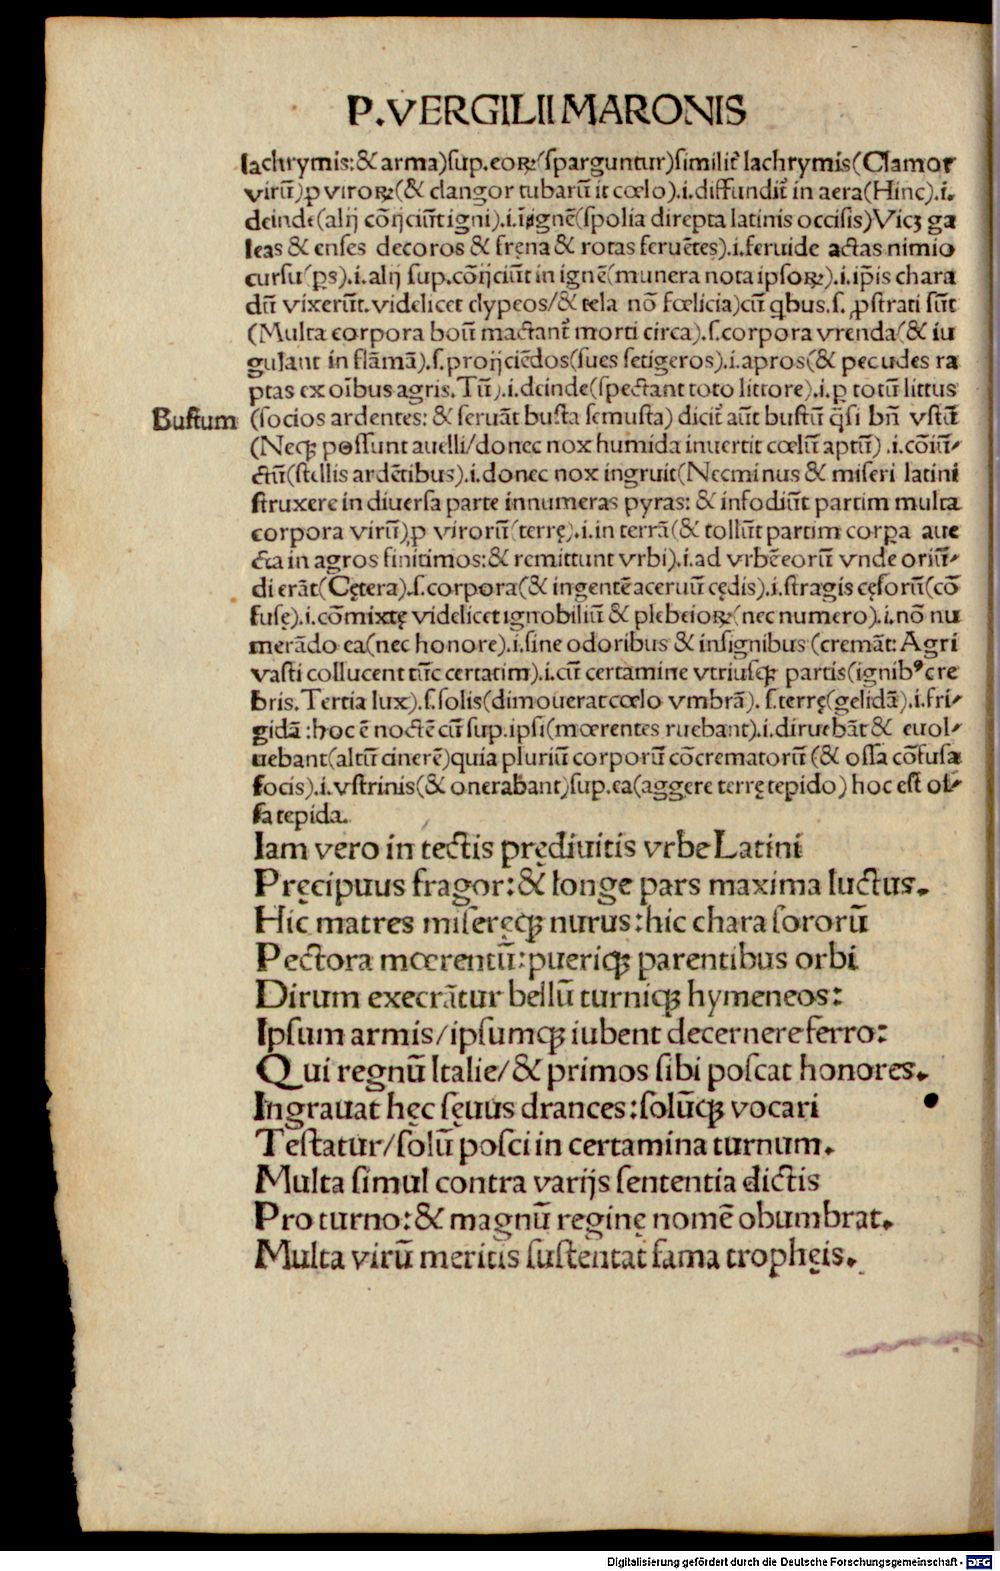 P.VERGILII MARONIS
lachrymis:& arma)sup.eoꝝ(sparguntur)similit̃ lachrymis(Clamor
virũ)ꝓ viroꝝ(& clangor tubarũ it cœlo).i.diffundit̃ in aera(Hinc).i.
deinde(alij cõijciũt igni).i.ĩ ignẽ(spolia direpta latinis occisis)Vicꝫ ga
leas & enses decoros & fręna & rotas feruẽtes).i.feruide actas nimio
cursu(ꝑs).i.alij sup.cõijciũt in ignẽ(munera nota ipsoꝝ).i.ip̃is chara
dũ vixerũt.videlicet clypeos/& tela nõ fœlicia)cũ q̃bus.s. ꝓstrati sũt
(Multa corpora boũ mactant̃ morti circa).s.corpora vrenda(& iu
gulant in flãmã).s.proijciẽdos(sues setigeros).i.apros(& pecudes ra
ptas ex oĩbus agris. Tũ).i.deinde(spectant toto littore).i.ꝑ totũ littus
Bustum (socios ardentes: & seruãt busta semusta) dicit̃ aũt bustũ q̃si bñ vstũ
(Necꝫ possunt auelli/donec nox humida inuertit cœlũ aptũ) .i.cõiũ-
ctũ(stellis ardẽtibus).i.donec nox ingruit(Necminus & miseri latini
struxere in diuersa parte innumeras pyras: & infodiũt partim multa
corpora virũ)ꝓ virorũ(terrę).i.in terrã(& tollũt partim corꝑa aue
cta in agros finitimos:& remittunt vrbi).i.ad vrbẽ eorũ vnde oriũ-
di erãt(Cętera).s.corpora(& ingentẽ aceruũ cędis).i.stragis cęsorũ(cõ
fusę).i.cõmixtę videlicet ignobiliũ & plebeioꝝ(nec numero).i.nõ nu
merãdo ea(nec honore).i.sine odoribus & insignibus (cremãt: Agri
vasti collucent tũc certatim).i.cũ certamine vtriusqꝫ partis(ignibꝰ cre
bris. Tertia lux).s.solis(dimouerat cœlo vmbrã). s.terrę(gelidã).i.fri-
gidã:hoc ẽ noctẽ cũ sup.ipsi(mœrentes ruebant).i.diruebãt & euol-
uebant(altũ cinerẽ)quia pluriũ corporũ cõcrematorũ (& ossa cõfusa
focis).i.vstrinis(& onerabant)sup.ea(aggere terrę tepido) hoc est os-
sa tepida.
Iam vero in tectis prędiuitis vrbe Latini
Pręcipuus fragor:& longe pars maxima luctus.
Hic matres miseręqꝫ nurus:hic chara sororũ
Pectora mœrentũ:pueriqꝫ parentibus orbi
Dirum execrãtur bellũ turniqꝫ hymeneos:
Ipsum armis/ipsumqꝫ iubent decernere ferro:
Qui regnũ Italie/& primos sibi poscat honores.
Ingrauat hęc sęuus drances:solũqꝫ vocari
Testatur/solũ posci in certamina turnum.
Multa simul contra varijs sententia dictis
Pro turno:& magnũ reginę nomẽ obumbrat.
Multa virũ meritis sustentat fama trophęis.
Digitalisierung gefördert durch die Deutsche Forschungsgemeinschaft - DFG